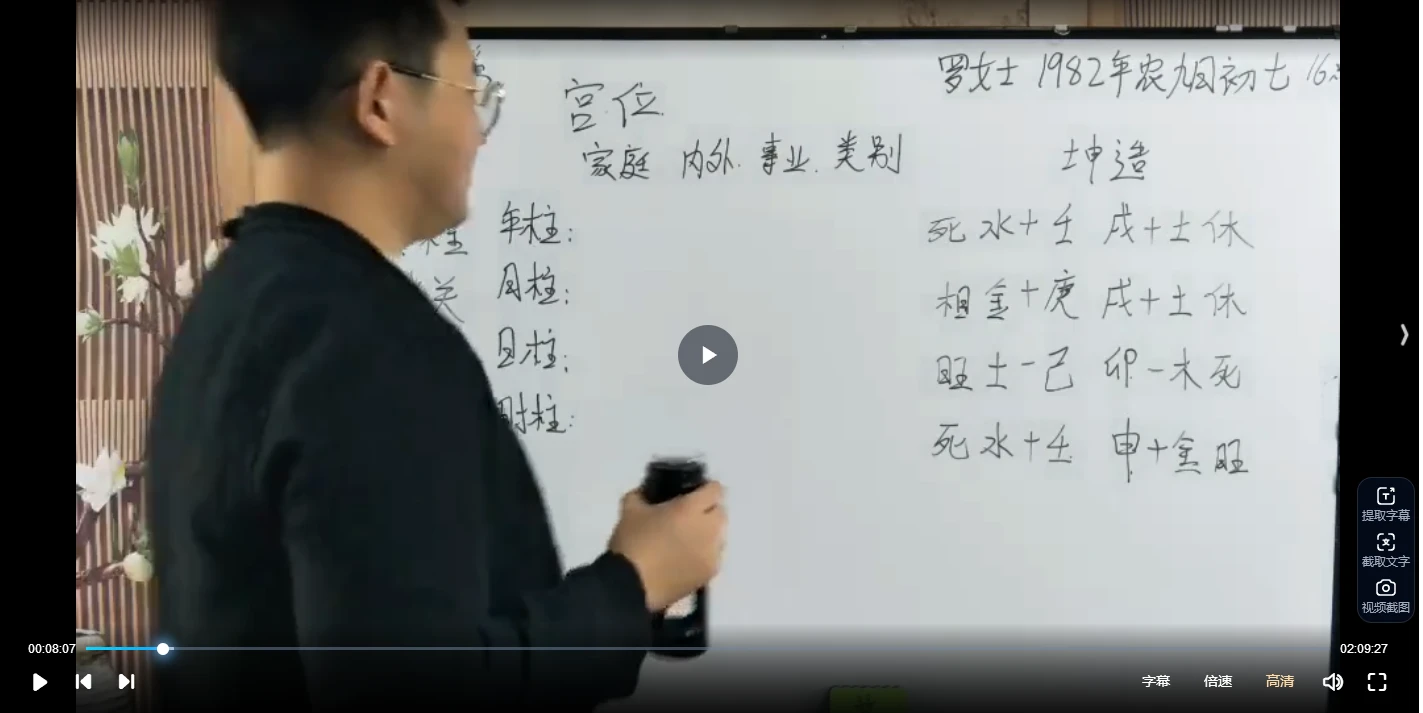 罗女士 1982年农九月初七 16
宫位
家庭 内外. 事业. 类别
坤造
年柱:
月柱:
日柱:
时柱:
死水+壬 戌+土休
相金+庚 戌+土休
旺土-己 卯-木死
死水+壬 申+金旺
提取字幕
截取文字
视频截图
00:08:07
02:09:27
字幕 倍速 高清